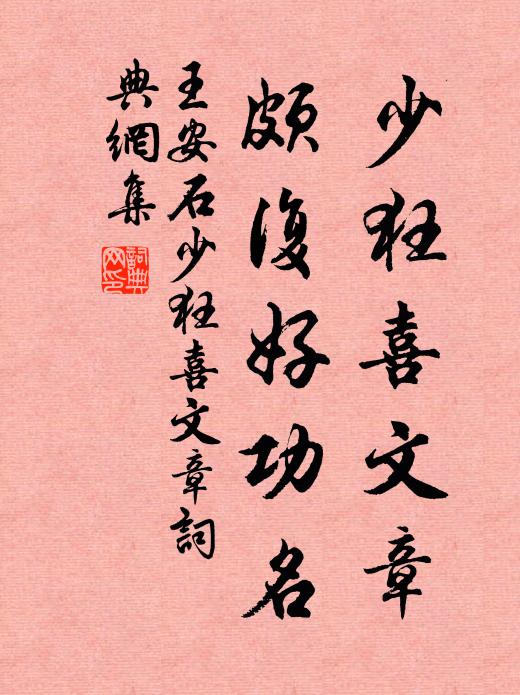 少狂喜文章
頗復好功名
王安石少狂喜文章詞
典網集
詞典
网印